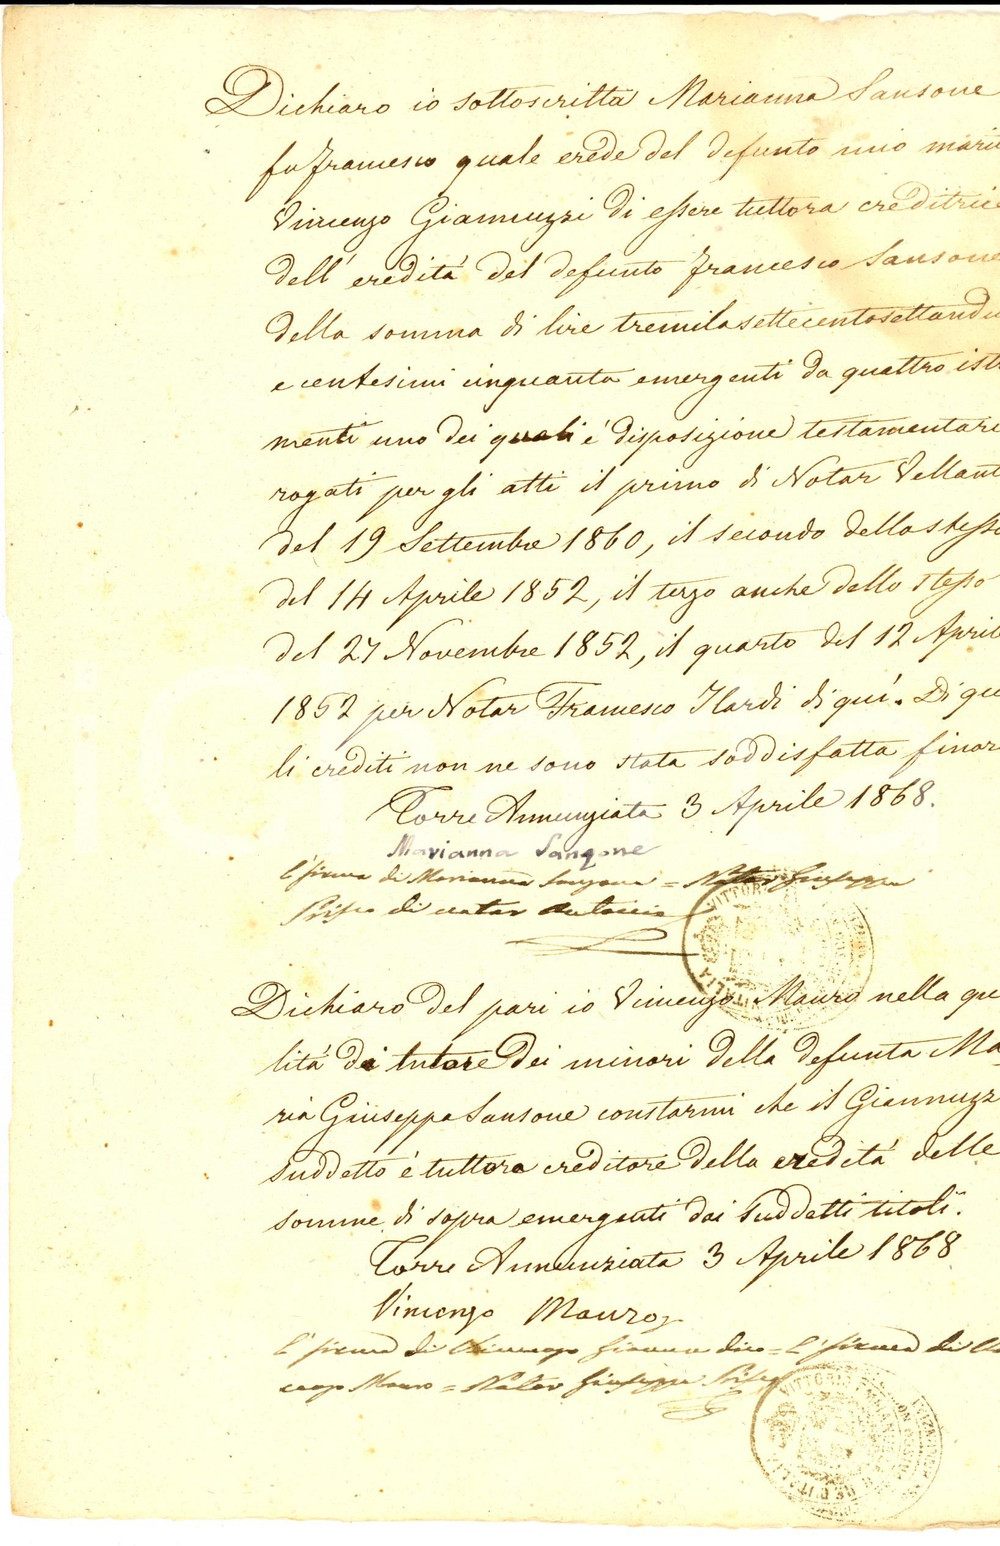 Dichiaro io sottoscritta Marianna Sansone
fu Francesco quale erede del defunto mio mari
Vincenzo Giannuzzi di essere tuttora creditrice
dell' eredità del defunto Francesco Sansone
della somma di lire tremilasettecentosettandu
e centesimi cinquanta emergenti da quattro ist
menti uno dei quali è disposizione testamentari
rogati per gli atti il primo di Notar Vellant
del 19 Settembre 1860, il secondo dello stesso
del 14 Aprile 1852, il terzo anche dello stesso
del 27 Novembre 1852, il quarto del 12 April
1852 per Notar Francesco Ilardi di qui. Di qu
li crediti non ne sono stata soddisfatta finor
Torre Annunziata 3 Aprile 1868.
Marianna Sansone
E' firma di Marianna Sansone = Notar Giuseppe
Prisco di notar Antonio
Dichiaro del pari io Vincenzo Mauro nella qua
lità di tutore dei minori della defunta Ma-
ria Giuseppa Sansone constarmi che il Giannuzz
suddetto è tuttora creditore della eredità delle
somme di sopra emergenti dai suddetti titoli.
Torre Annunziata 3 Aprile 1868
Vincenzo Mauro
E' firma di Vincenzo dico = E' firma di Vi
cenzo Mauro = Notar Giuseppe Prisco